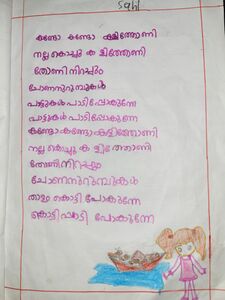 കണ്ടോ കണ്ടോ കളിത്തോണി
നല്ല കൊച്ചു ക ളിത്തോണി
തോണി നിറപ്പും
ചോണനുറുമ്പുകൾ
പാട്ടുകൾ പാടിപ്പോകുന്നേ
പാട്ടുകൾ പാടിപോകുണേ
കണ്ടോ കണ്ടോ കളിത്തോണി
നല്ല കൊച്ചു ക ളിത്തോണി
തോണി നിറപ്പും
ചോണനുറുമ്പുകൾ
താളം കൊട്ടി പോകുന്നേ
കൊട്ടി പാടി പോകുന്നേ